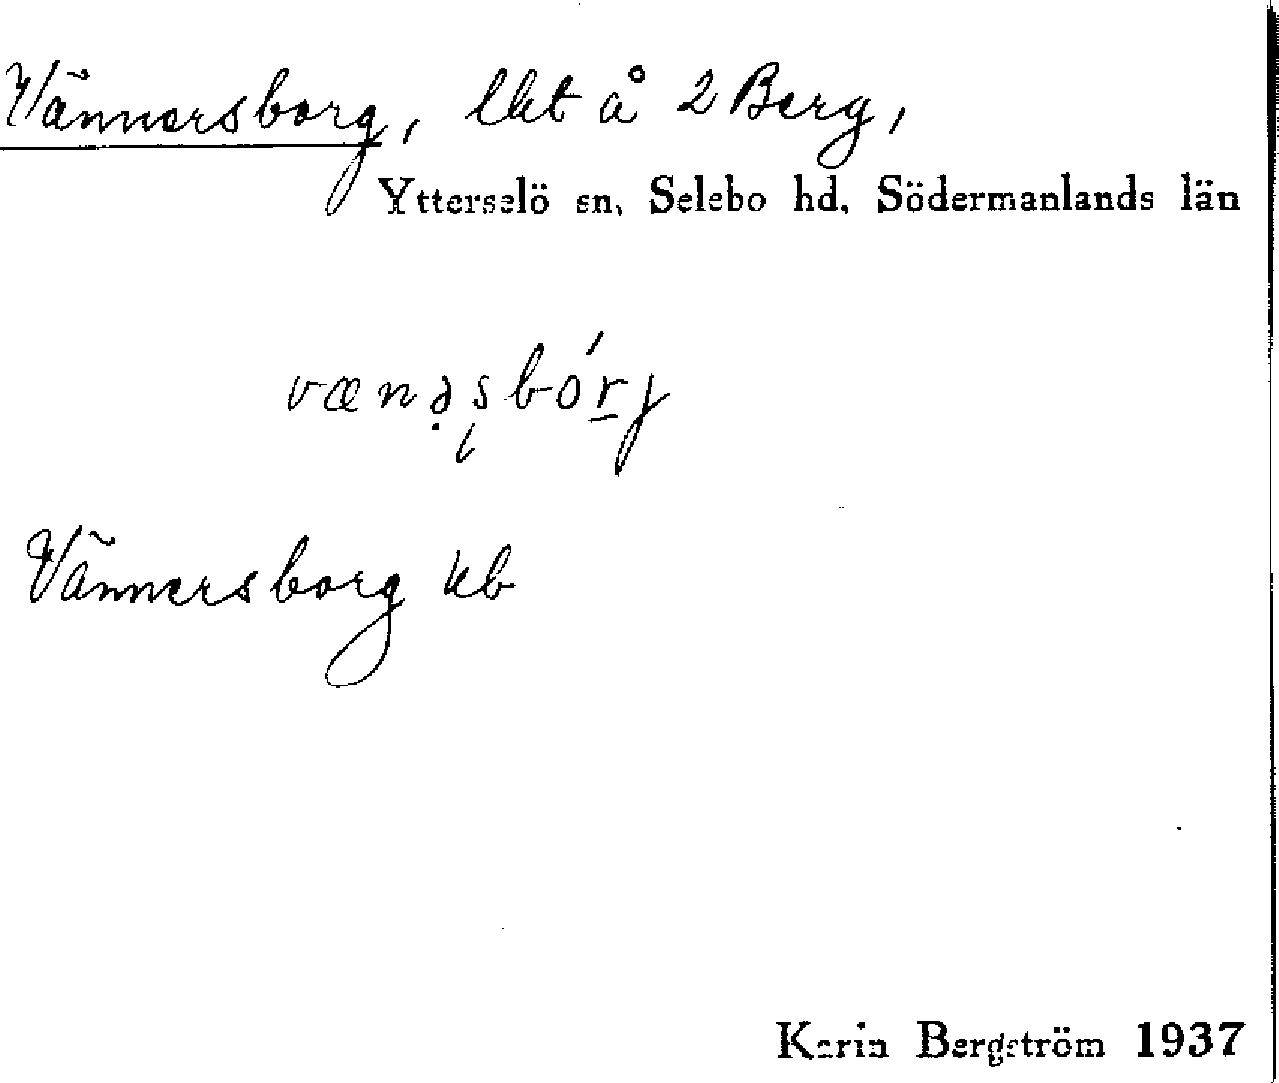 Vännersborg, lht å 2 Berg,
Ytterselö sn, Selebo hd, Södermanlands län
vænə̣ʂbórj
Vännersborg kb
Karin Bergström 1937